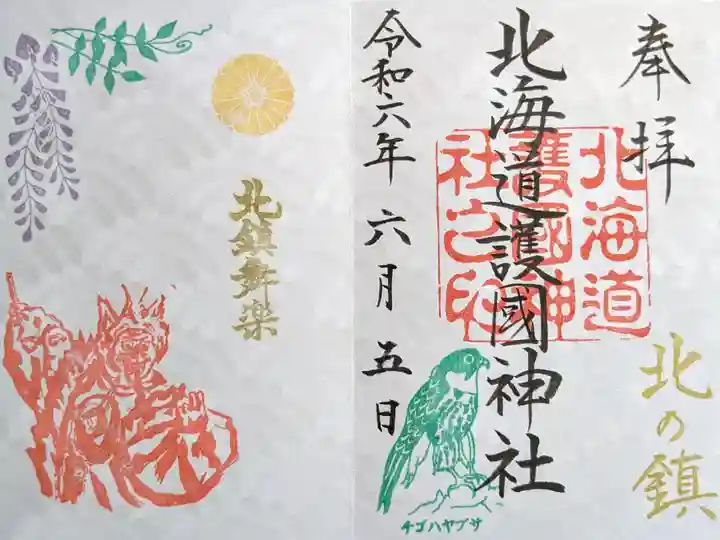 奉拝
北海道護國神社
北海道護國神社之印
令和六年 六月 五日
北の鎮
チゴハヤブサ
北鎮舞楽